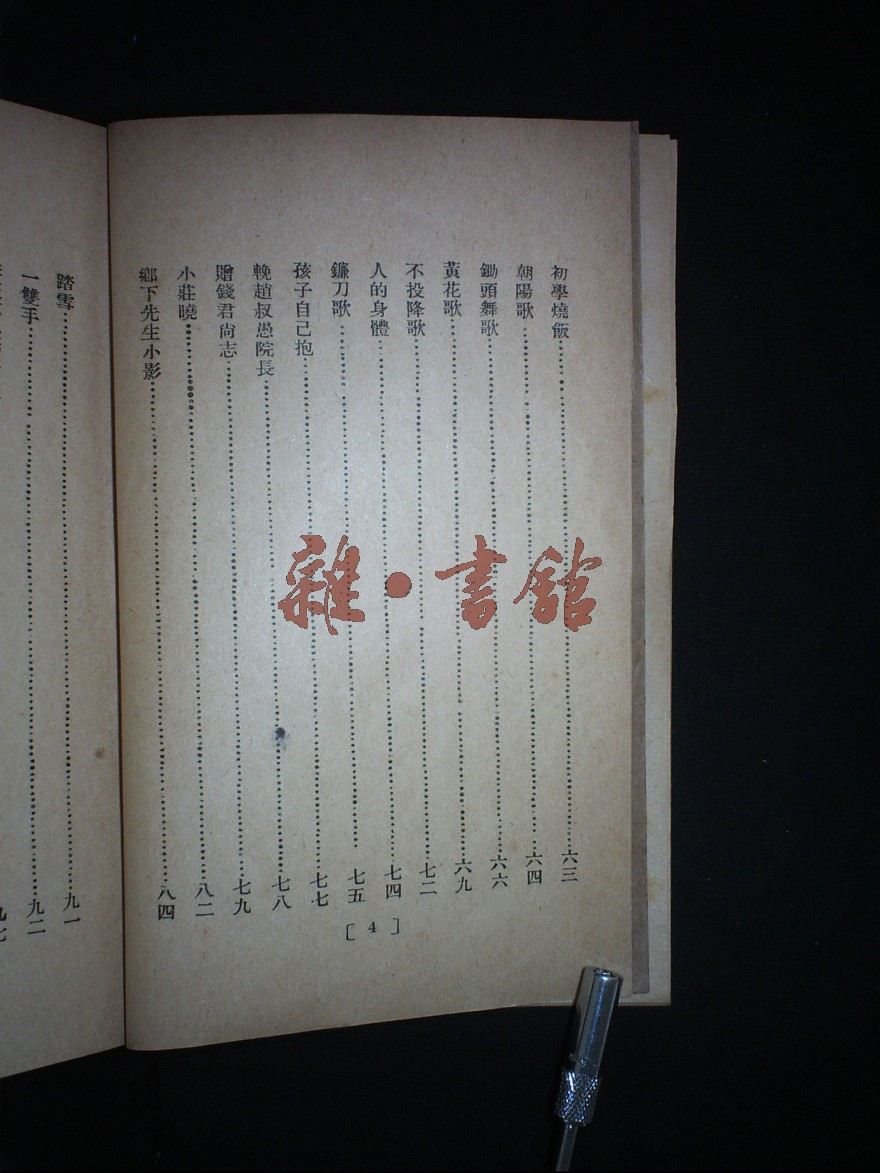 初學燒飯……六三
朝陽歌……六四
鋤頭舞歌……六六
黃花歌……六九
不投降歌……七二
人的身體……七四
鐮刀歌……七五
孩子自己抱……七七
輓趙叔愚院長……七八
贈錢君尚志……七九
小莊曉……八二
鄉下先生小影……八四
[4]
踏雪……九一
一雙手……九二
九七
雜·書館